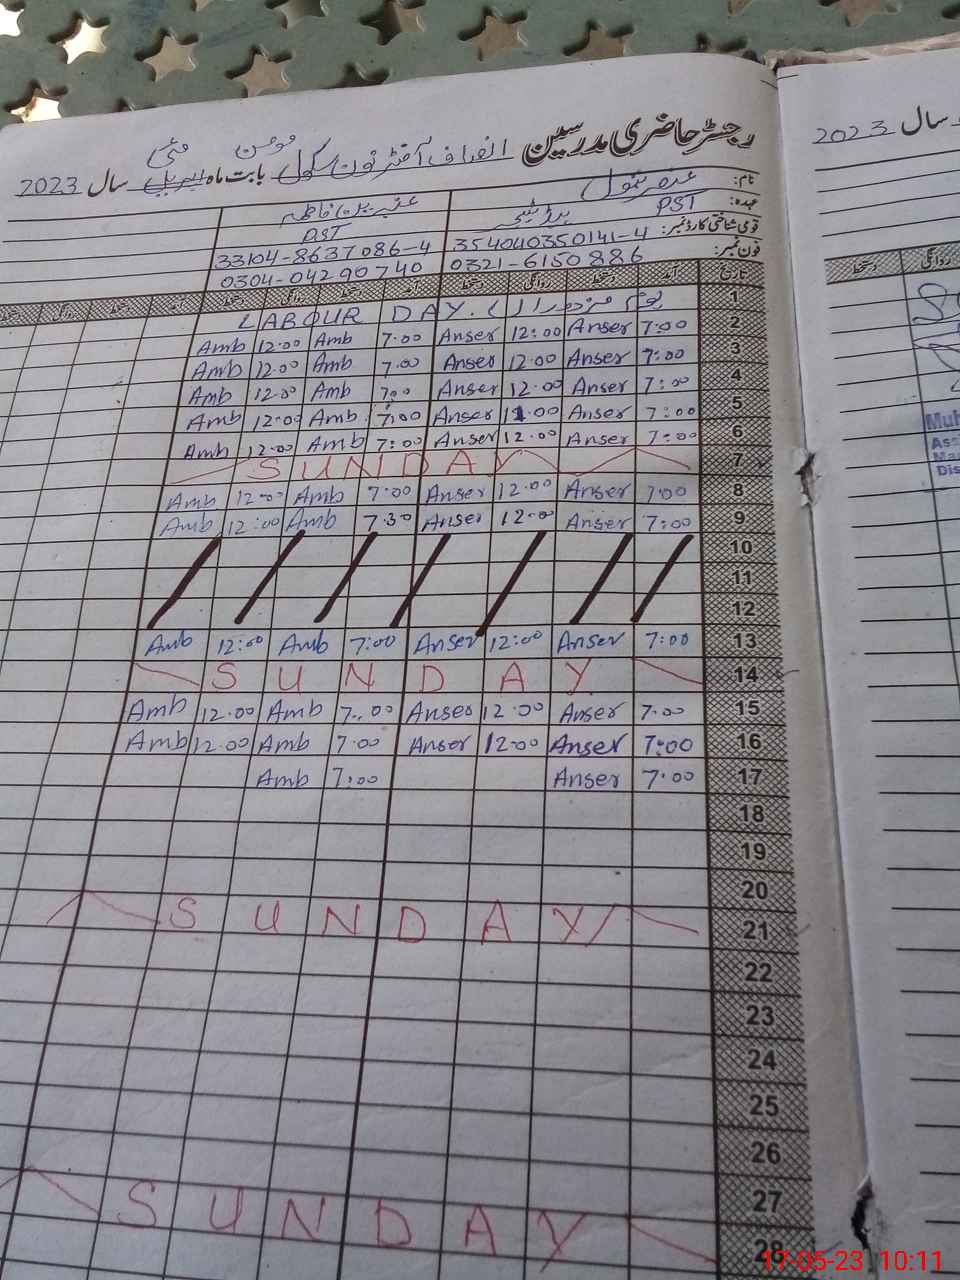 رجسٹر حاضری مدرسین انصاف آفٹرنون سکول بابت ماہ اپریل مئی سال 2023
سال 2023
نام:
عہدہ: PST ہیڈ ٹیچر PST
قومی شناختی کارڈ نمبر: 354040350141-4 33104-8637086-4
فون نمبر: 0321-6150886 0304-04290740
تاریخ آمد دستخط روانگی دستخط آمد دستخط روانگی دستخط آمد دستخط روانگی دستخط
روانگی دستخط
LABOUR DAY. یوم مزدوراں 1
Amb 12:00 Amb 7:00 Anser 12:00 Anser 7:00 2
Amb 12.00 Amb 7.00 Anser 12.00 Anser 7:00 3
Amb 12.00 Amb 7.00 Anser 12.00 Anser 7:00 4
Amb 12:00 Amb 7:00 Anser 12.00 Anser 7:00 5
Amb 12.00 Amb 7:00 Anser 12.00 Anser 7:00 6
SUNDAY 7
Amb 12:00 Amb 7:00 Anser 12:00 Anser 7:00 8
Amb 12:00 Amb 7.30 Anser 12:00 Anser 7:00 9
10
11
12
Amb 12:00 Amb 7:00 Anser 12:00 Anser 7:00 13
SUNDAY 14
Amb 12.00 Amb 7..00 Anser 12.00 Anser 7.00 15
Amb 12.00 Amb 7.00 Anser 12:00 Anser 7:00 16
Amb 7:00 Anser 7.00 17
18
19
20
SUNDAY 21
22
23
24
25
26
27
SUNDAY 28
17-05-23 10:11